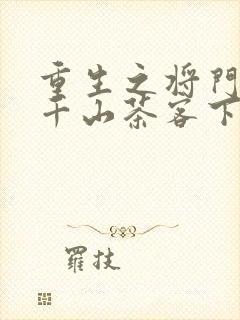 重生之将門
千山茶客下
羅技